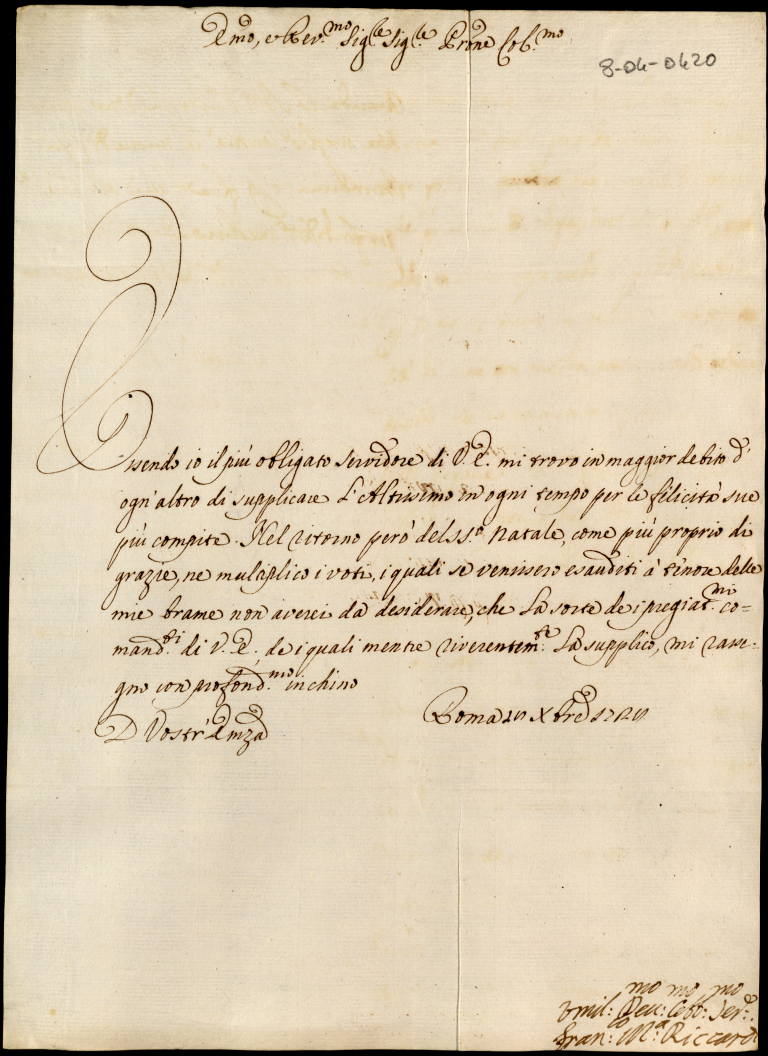 Emo, e Rev.mo Sig.re Sig.re Prone Col.mo
8-04-0420
Essendo io il più obligato servidore di V. E. mi trovo in maggior debito d'
ogn'altro di supplicare L'Altissimo in ogni tempo per le felicità sue
più compite. Nel ritorno però del SS.o Natale, come più proprio di
grazie, ne multiplico i voti, i quali se venissero esauditi à tenore delle
mie brame non averei da desiderare, che la sorte dei pregiat.mi co=
mand.ti di V. E., de i quali mentre riverentem.te La supplico, mi rasse=
gno con profond.mo inchino
D Vostr'Emza
Roma Xbre
Umil:mo Dev:mo Obb:mo Ser:e
Fran:co M.a Riccardi